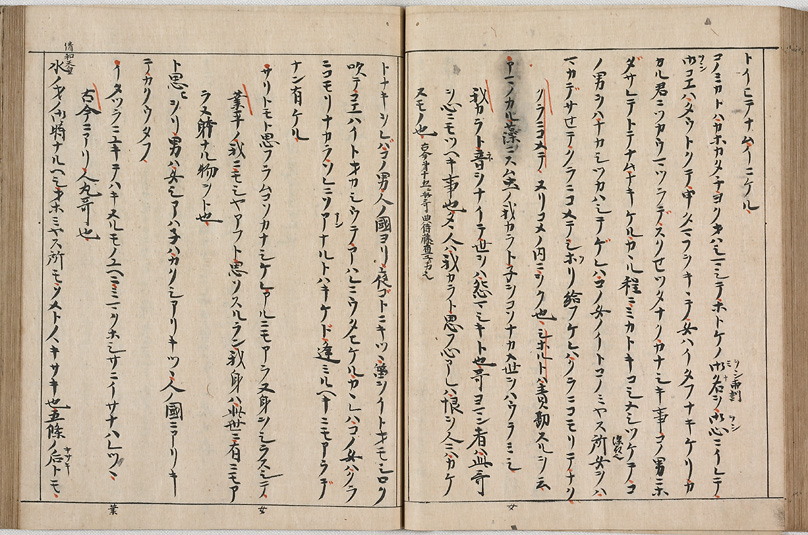 トイヒテナムイニケル
コノミカトハカホカタチヨクオハシマシテホトケノ御名ヲ御心ニイレテ
御コエハタウトクテ申タマフヲキヽテ女ハイタフナキケリカ
カル君ニツカウマツラデスクセツタナクカナシキ事コノ男ニホ
ダサレテトテナムナキケルカヽル程ニミカトキコシメシツケテコ
ノ男ヲハナカシツカハシテゲレハコノ女ノイトコノミヤス所女ヲハ
マカデサセテクラニコメテシホリ給フケレハクラニコモリテナク
クラニコメテ ヌリコメノ内ニヲク也シホルトハ責勘スルヲ云
アマノカル藻ニスム虫ノ我カラト子ヲコソナカメ世ヲハウラミシ
我カラト音ヲナイテ世ヲハ怨マシキト也哥ヨマン者ハ此哥
心ニモツヘキ事也タヽ人ハ我カラト思フ心アレハ恨ヲ人ニハカケ
スモノ也 古今第十五ニ此哥ハ典侍藤直子
トナキヲレハコノ男人ノ國ヨリ夜ゴトニキツヽ笛ヲイトオモシロク
吹テコエハイトオカシウテアハレニウタヒケルカヽレハコノ女ハクラ
ニコモリナカラソレニソアナルトハキケド逢ミルヘキニモアラデ
ナン有ケル
サリトモト思フラムコソカナシケレアルニモアラヌ身ヲシラスシテ
業平ノ我ニモシヤアフト思ヲスルラン我身ハ此世ニ有ニモア
ラヌ時ナル物ヲト也
ト思ヒヲリ男ハ女シアハ子ハカクシアリキツヽ人國ニアリキ
テカクウタフ
イタツラニユキテハキヌルモノユヘニミマクホシサニイサナハレツヽ
古今ニアリ人丸哥也
清和天皇
水ノオノ御時ナルヘシ大ミヤス所モソメトノヽキサキ也五條ノ后トモ